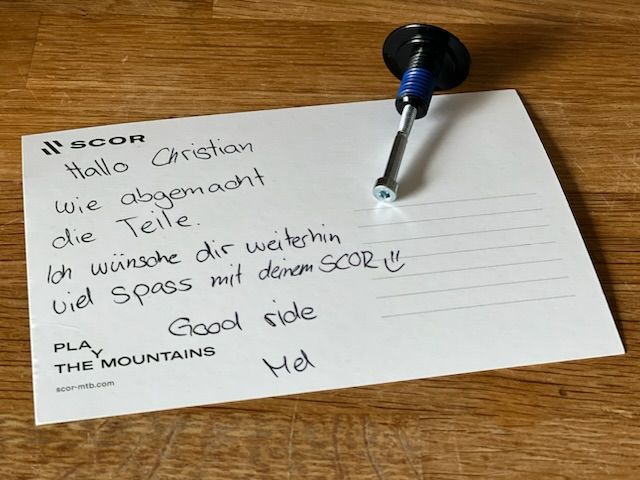 SCOR
Hallo Christian
wie abgemacht
die Teile.
Ich wünsche dir weiterhin
viel Spass mit deinem SCOR
Good ride
Mel
PLAY
THE MOUNTAINS
scor-mtb.com